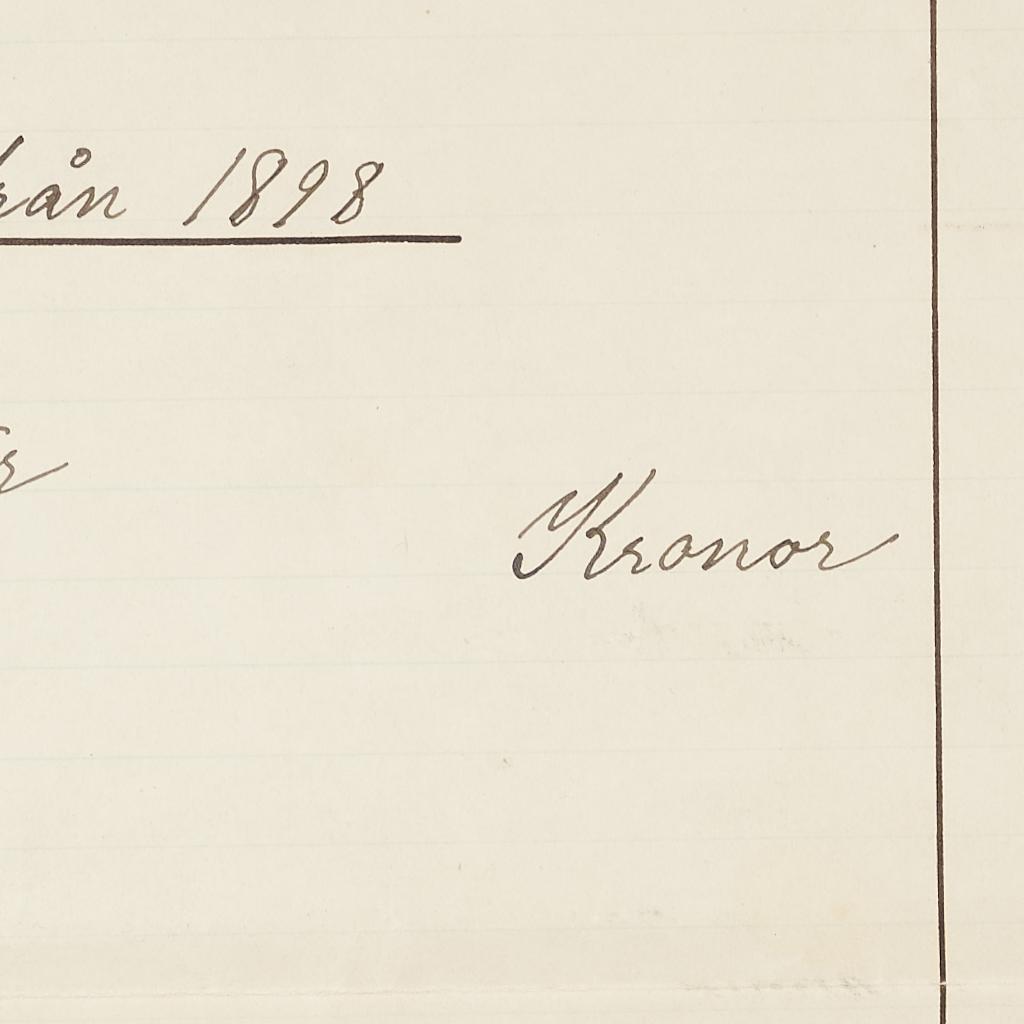 från 1898
Kronor